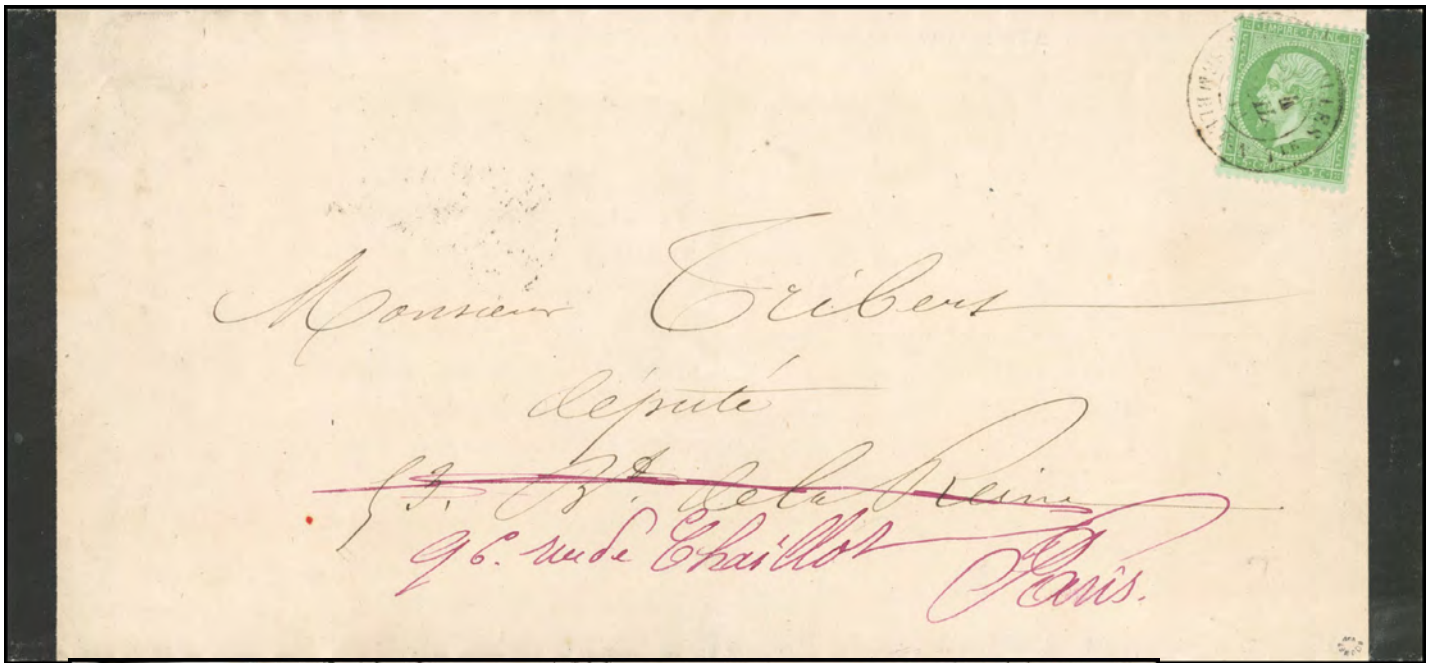 EMPIRE FRANC
Monsieur Tribert
député
53. Bd. de la Reine
96. rue de Chaillot
Paris.